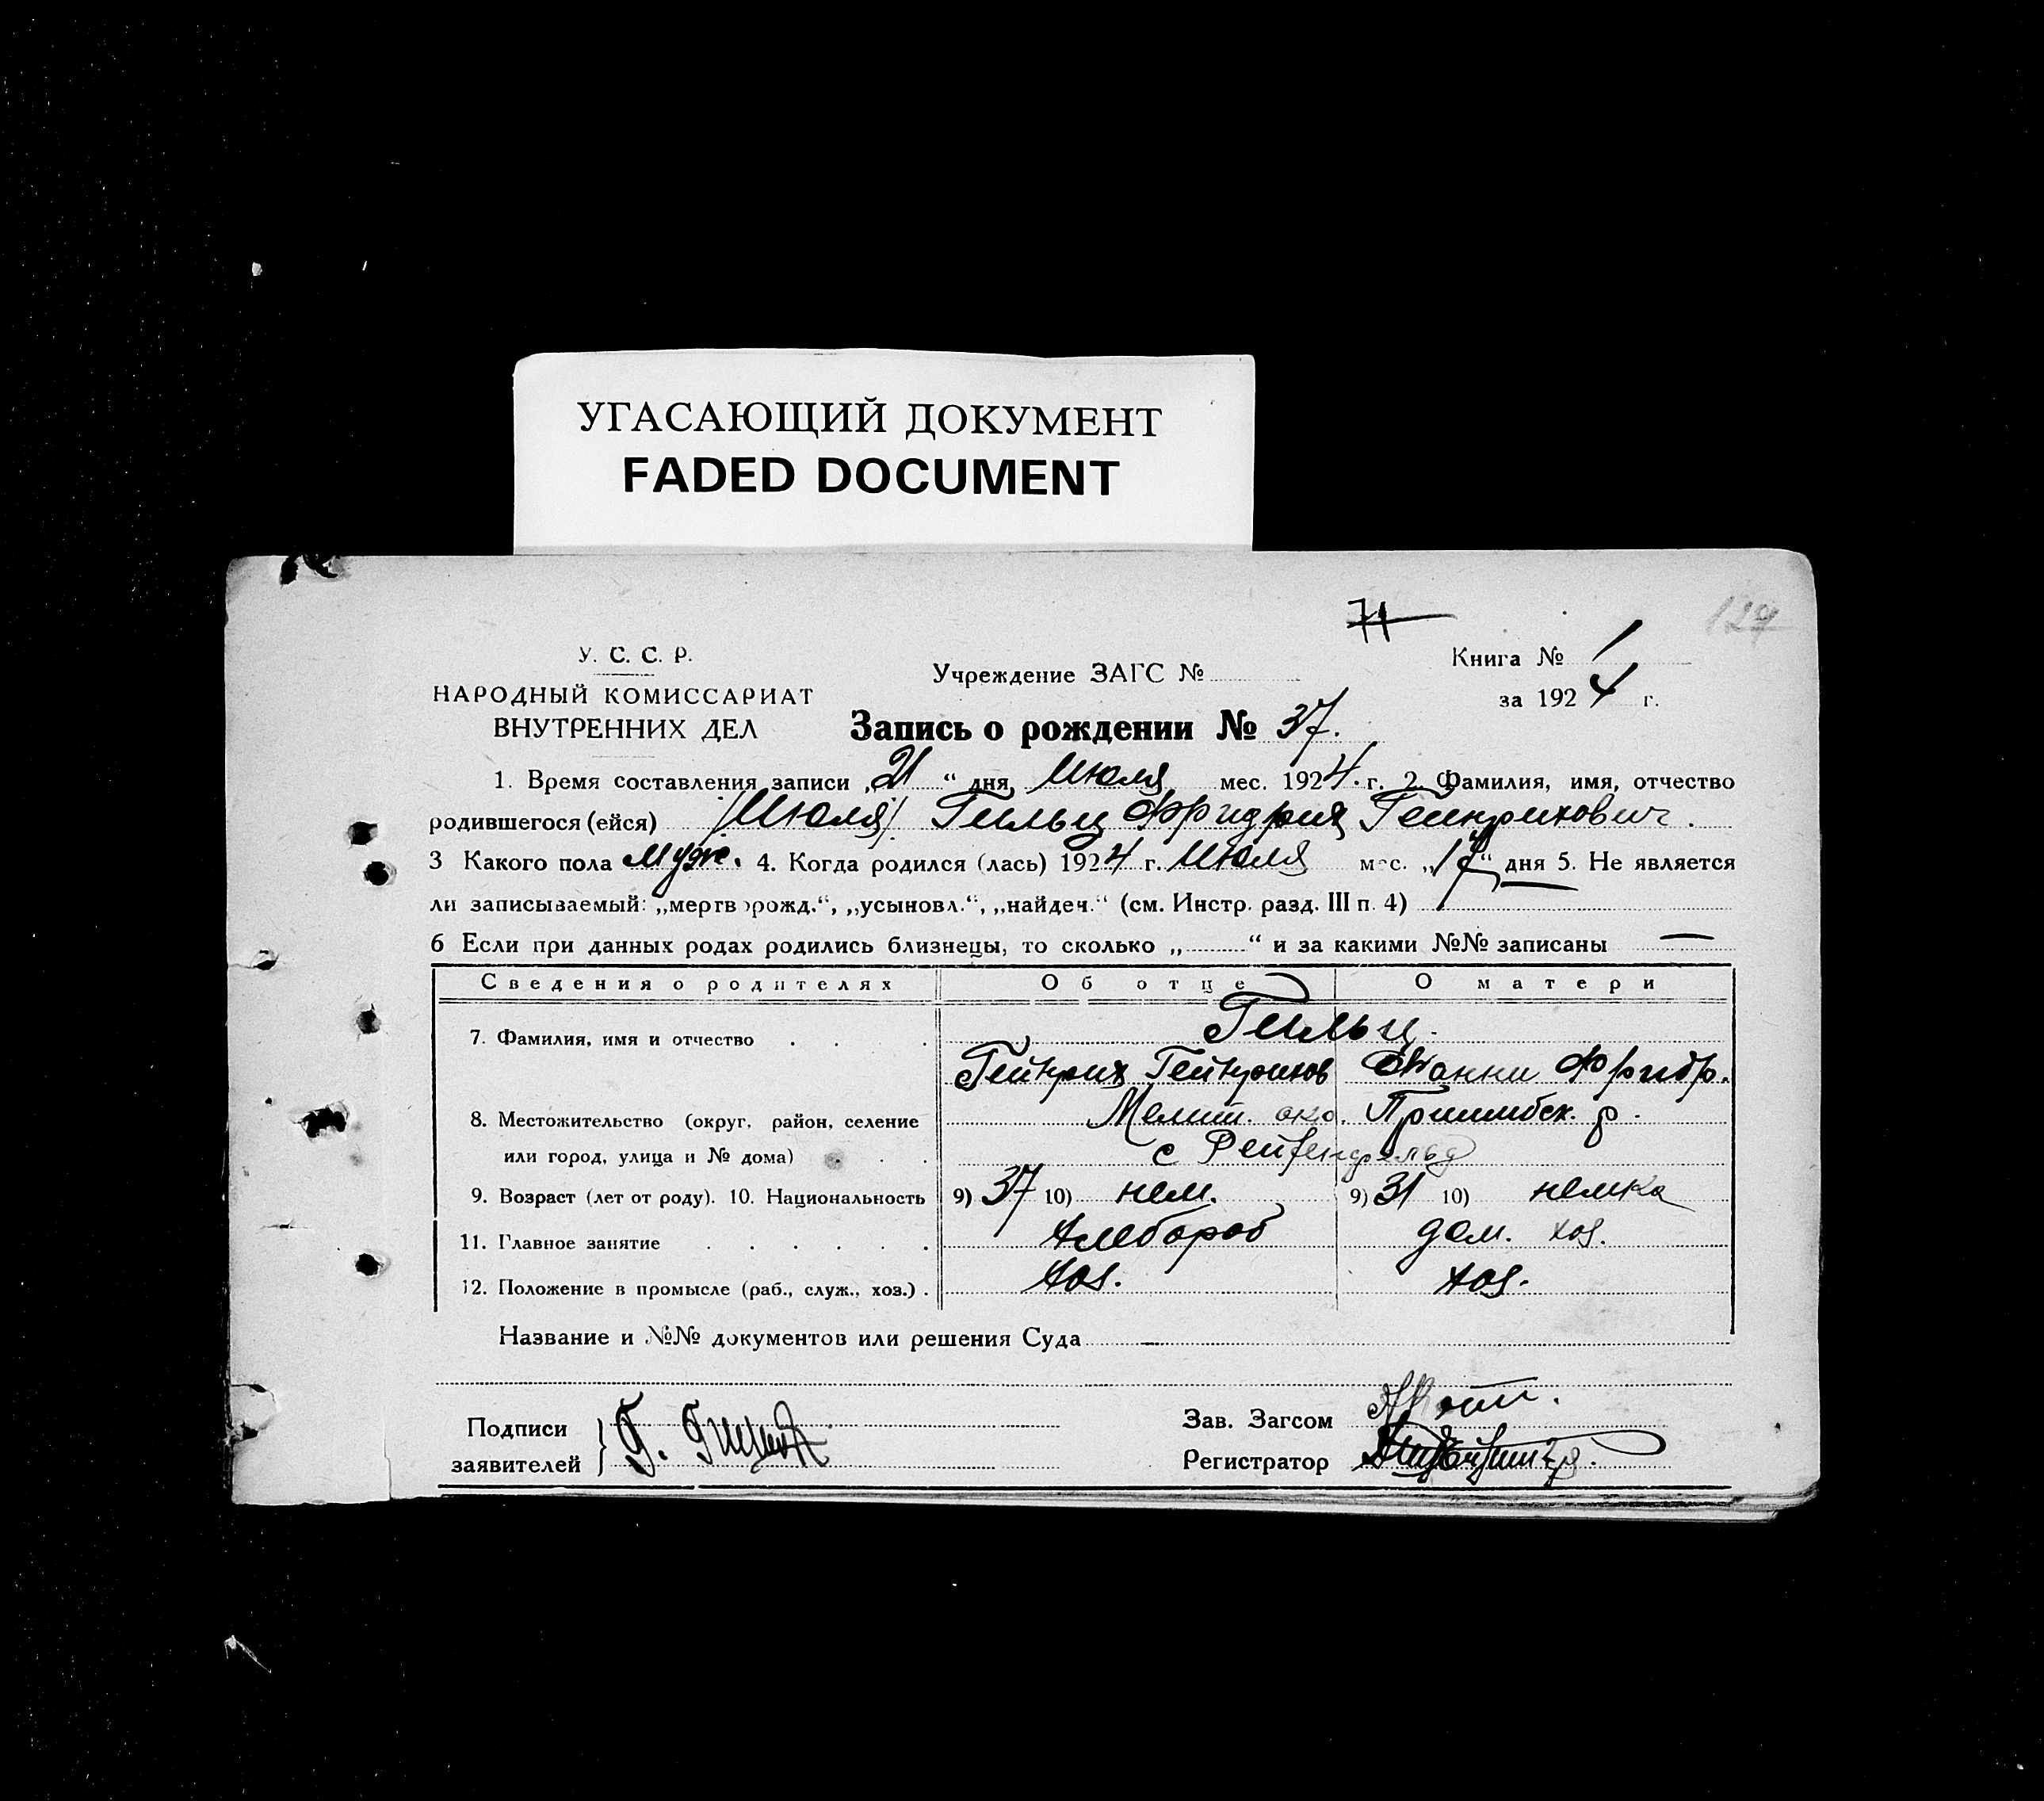 УГАСАЮЩИЙ ДОКУМЕНТ
FADED DOCUMENT
71
127
У. С. С. Р.
НАРОДНЫЙ КОМИССАРИАТ
ВНУТРЕННИХ ДЕЛ
Учреждение ЗАГС №
Книга № 1
за 1924 г.
Запись о рождении № 37.
1. Время составления записи „21“ дня Июля мес. 1924 г. 2. Фамилия, имя, отчество
родившегося (ейся) /Июля/ Гильц Фридрих Гейнрихович.
3 Какого пола муж. 4. Когда родился (лась) 1924 г. Июля мес. „17“ дня 5. Не является
ли записываемый: „мертворожд.“, „усыновл.“, „найдеч.“ (см. Инстр. разд. III п. 4)
6 Если при данных родах родились близнецы, то сколько „ “ и за какими №№ записаны —
Сведения о родителях Об отце О матери
7. Фамилия, имя и отчество Гильц.
Гейнрих Гейнрихов Фридр.
8. Местожительство (округ, район, селение Мелит. окр. Пришибск. р.
или город, улица и № дома) с Рейхенфельд
9. Возраст (лет от роду). 10. Национальность 9) 37 10) нем. 9) 31 10) немка
11. Главное занятие хлебороб дом. хоз.
12. Положение в промысле (раб., служ., хоз.) хоз. хоз.
Название и №№ документов или решения Суда —
Подписи
заявителей } Г.
Зав. Загсом
Регистратор